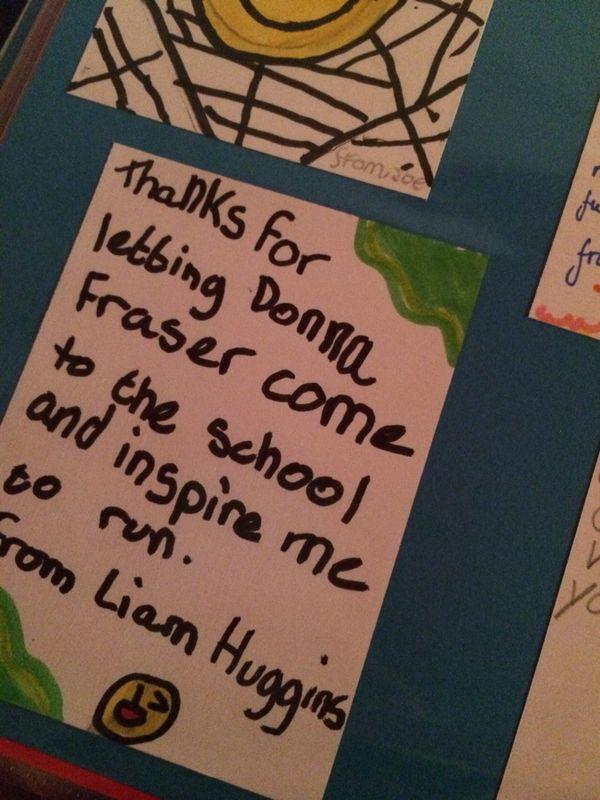 from, Joe
Thanks for
letting Donna
Fraser come
to the school
and inspire me
to run.
From Liam Huggins
fr
yo